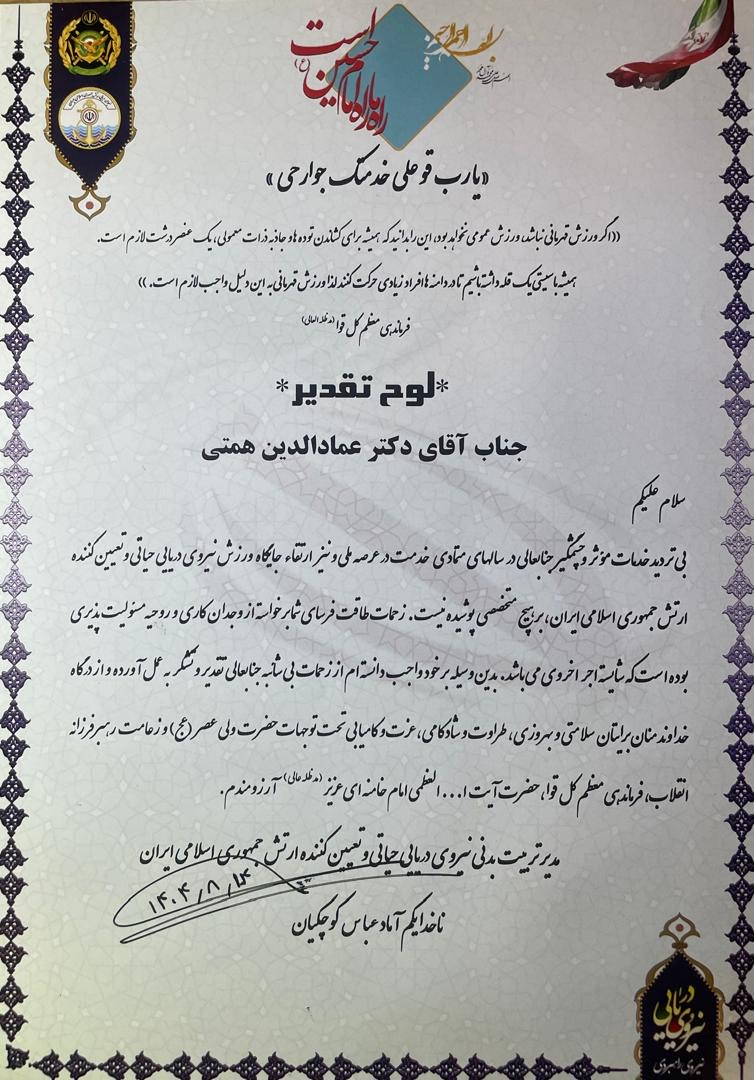 بسم الله الرحمن الرحیم
راه ما راه امام حسین (ع) است
«یارب قو علی خدمتک جوارحی»
((اگر ورزش قهرمانی نباشد، ورزش عمومی نخواهد بود، این را بدانید که همیشه برای کشاندن توده ها و جاذبه ذرات معمولی، یک عنصر درشت لازم است.
همیشه بایستی یک قله داشته باشیم تا در دامنه ها افراد زیادی حرکت کنند لذا ورزش قهرمانی به این دلیل واجب لازم است.))
فرماندهی معظم کل قوا (مدظله العالی)
*لوح تقدیر*
جناب آقای دکتر عمادالدین همتی
سلام علیکم
بی تردید خدمات مؤثر و چشمگیر جنابعالی در سالهای متمادی خدمت در عرصه ملی و نیز ارتقاء جایگاه ورزش نیروی دریایی حیاتی و تعیین کننده
ارتش جمهوری اسلامی ایران، بر هیچ متخصصی پوشیده نیست. زحمات طاقت فرسای شما برخواسته از وجدان کاری و روحیه مسئولیت پذیری
بوده است که شایسته اجر اخروی می باشد. بدین وسیله بر خود واجب دانسته ام از زحمات بی شائبه جنابعالی تقدیر و تشکر به عمل آورده و از درگاه
خداوند منان برایتان سلامتی و بهروزی، طراوت و شادکامی، عزت و کامیابی تحت توجهات حضرت ولی عصر (عج) و زعامت رهبر فرزانه
انقلاب، فرماندهی معظم کل قوا، حضرت آیت ا... العظمی امام خامنه ای عزیز (مدظله عالی) آرزومندم.
مدیر تربیت بدنی نیروی دریایی حیاتی و تعیین کننده ارتش جمهوری اسلامی ایران
۱۴۰۴/۸/۱۴
ناخدا یکم آماد عباس کوچکیان
نیروی دریایی
نیروی راهبردی